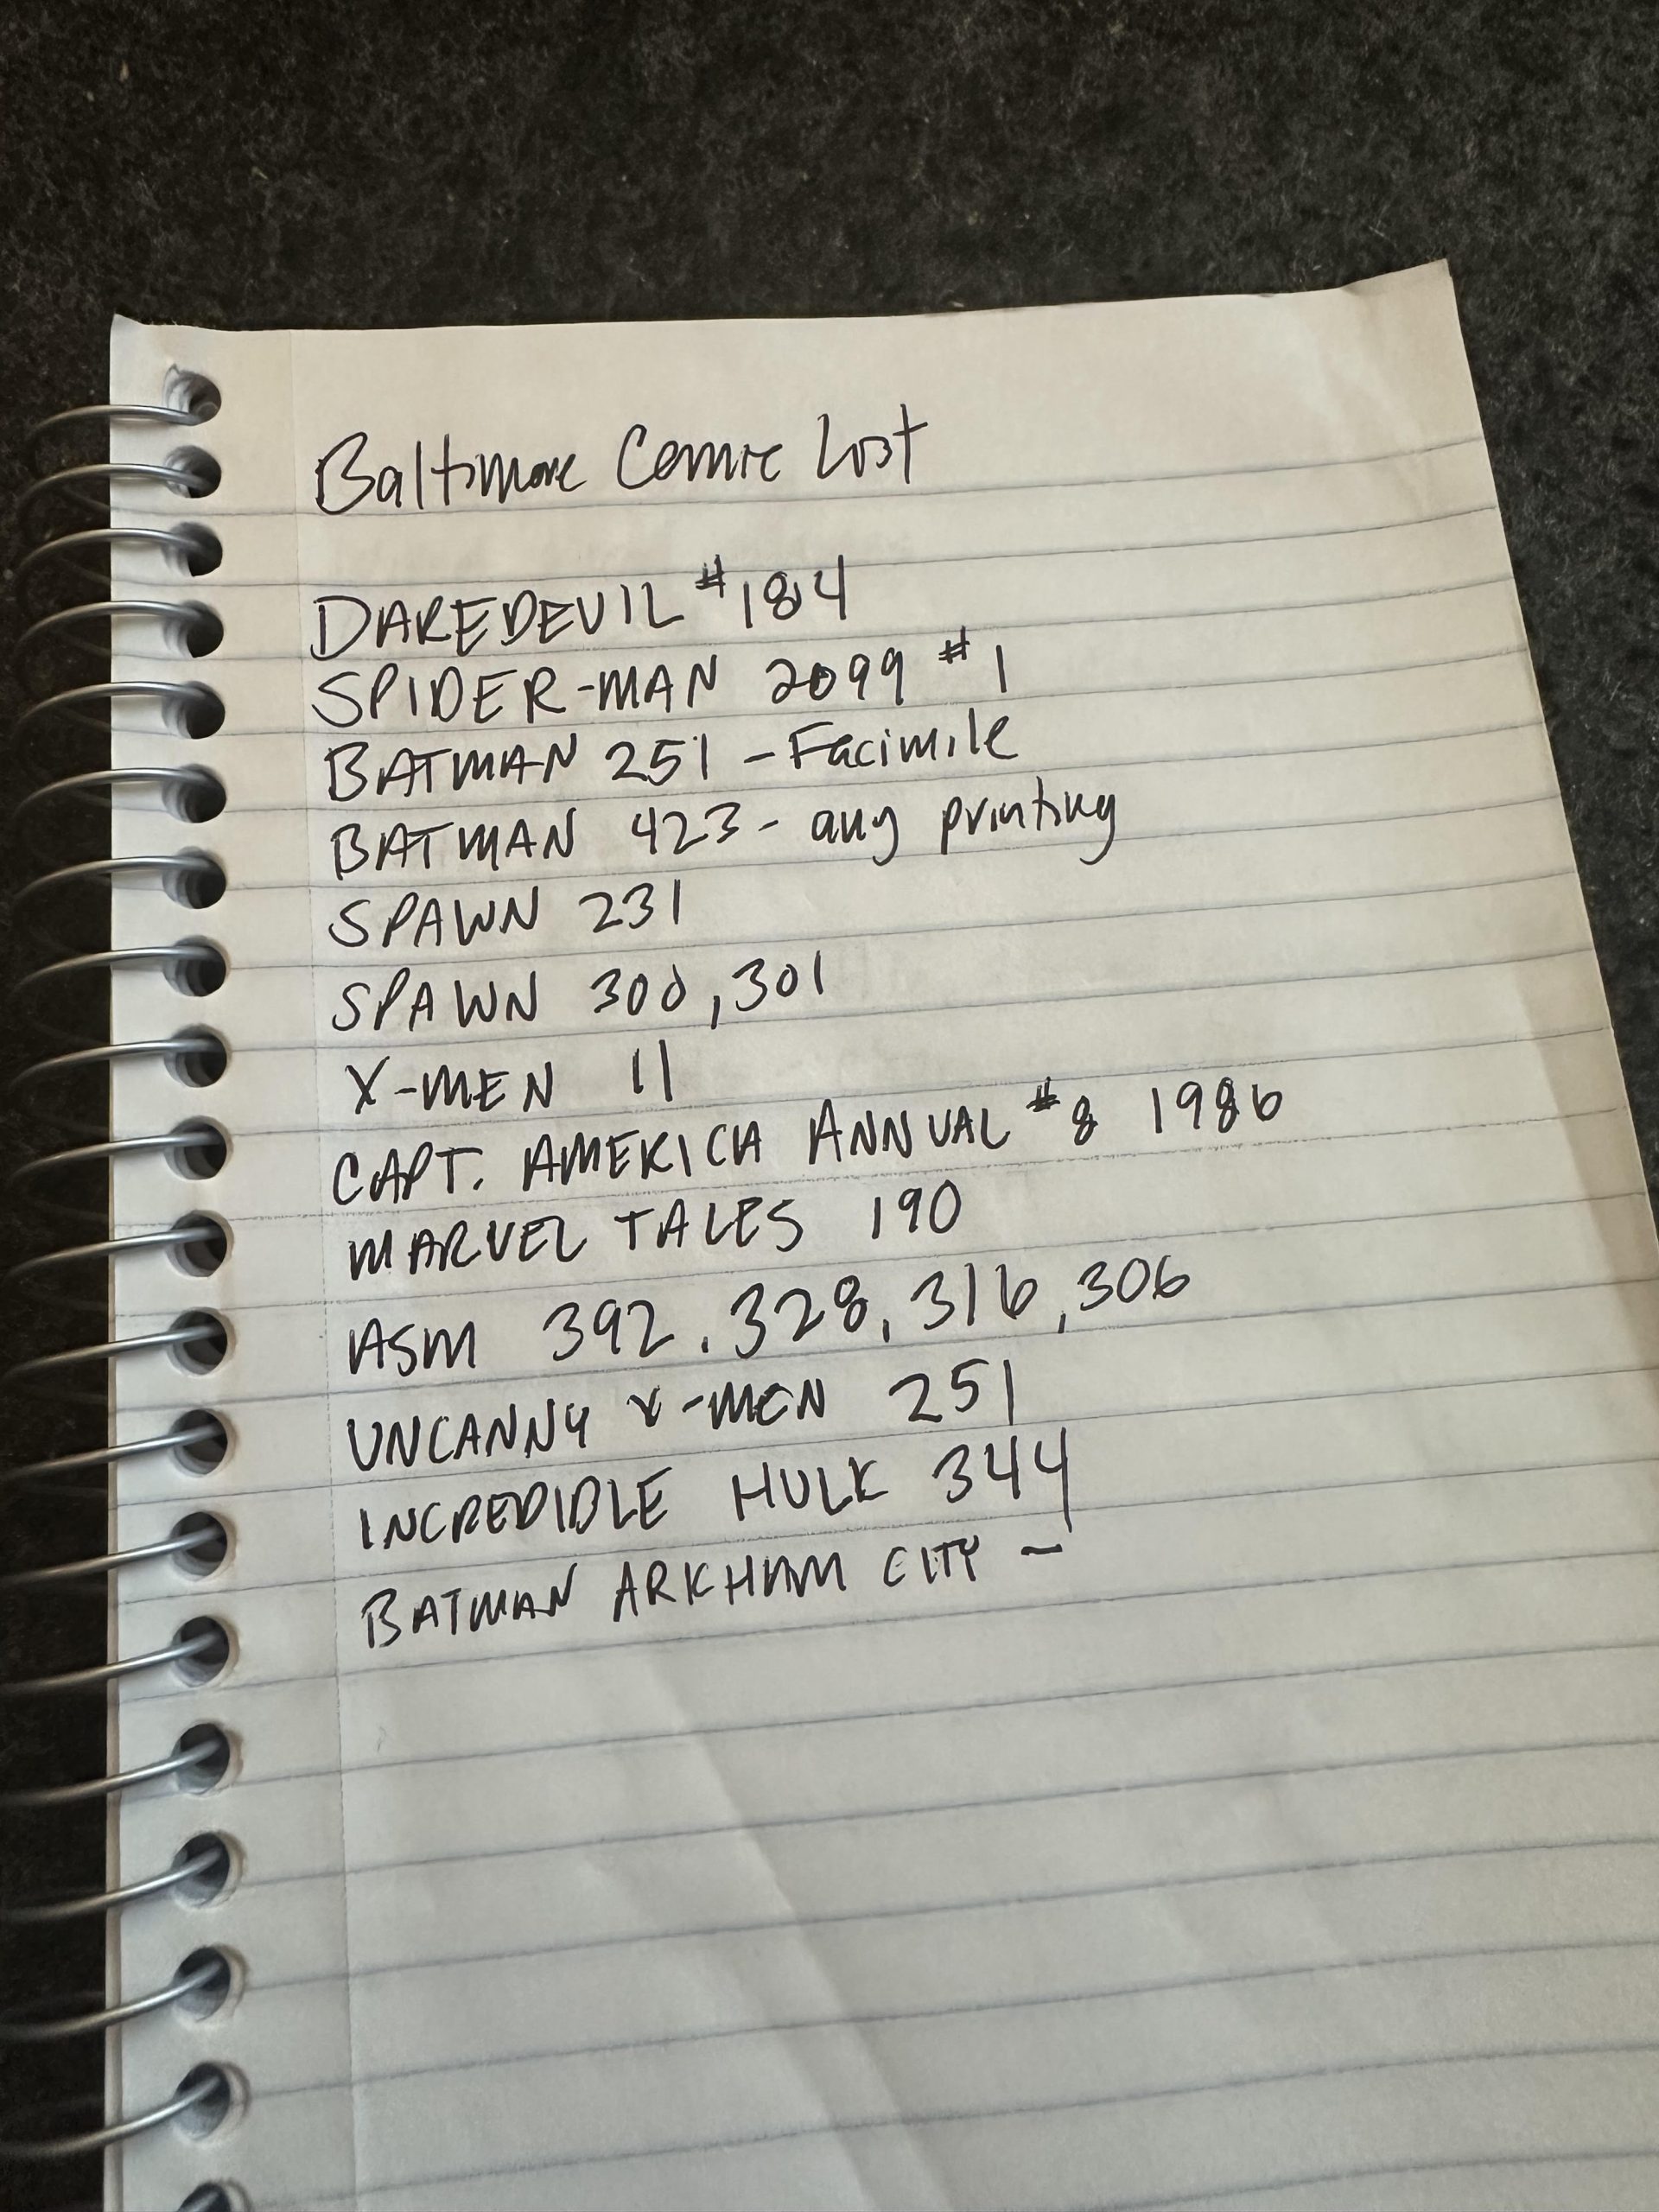 Baltimore Comic List
DAREDEVIL #184
SPIDER-MAN 2099 #1
BATMAN 251 - Facimile
BATMAN 423 - any printing
SPAWN 231
SPAWN 300, 301
X-MEN 11
CAPT. AMERICA ANNUAL #8 1986
MARVEL TALES 190
ASM 392, 328, 316, 306
UNCANNY X-MEN 251
INCREDIBLE HULK 344
BATMAN ARKHAM CITY -